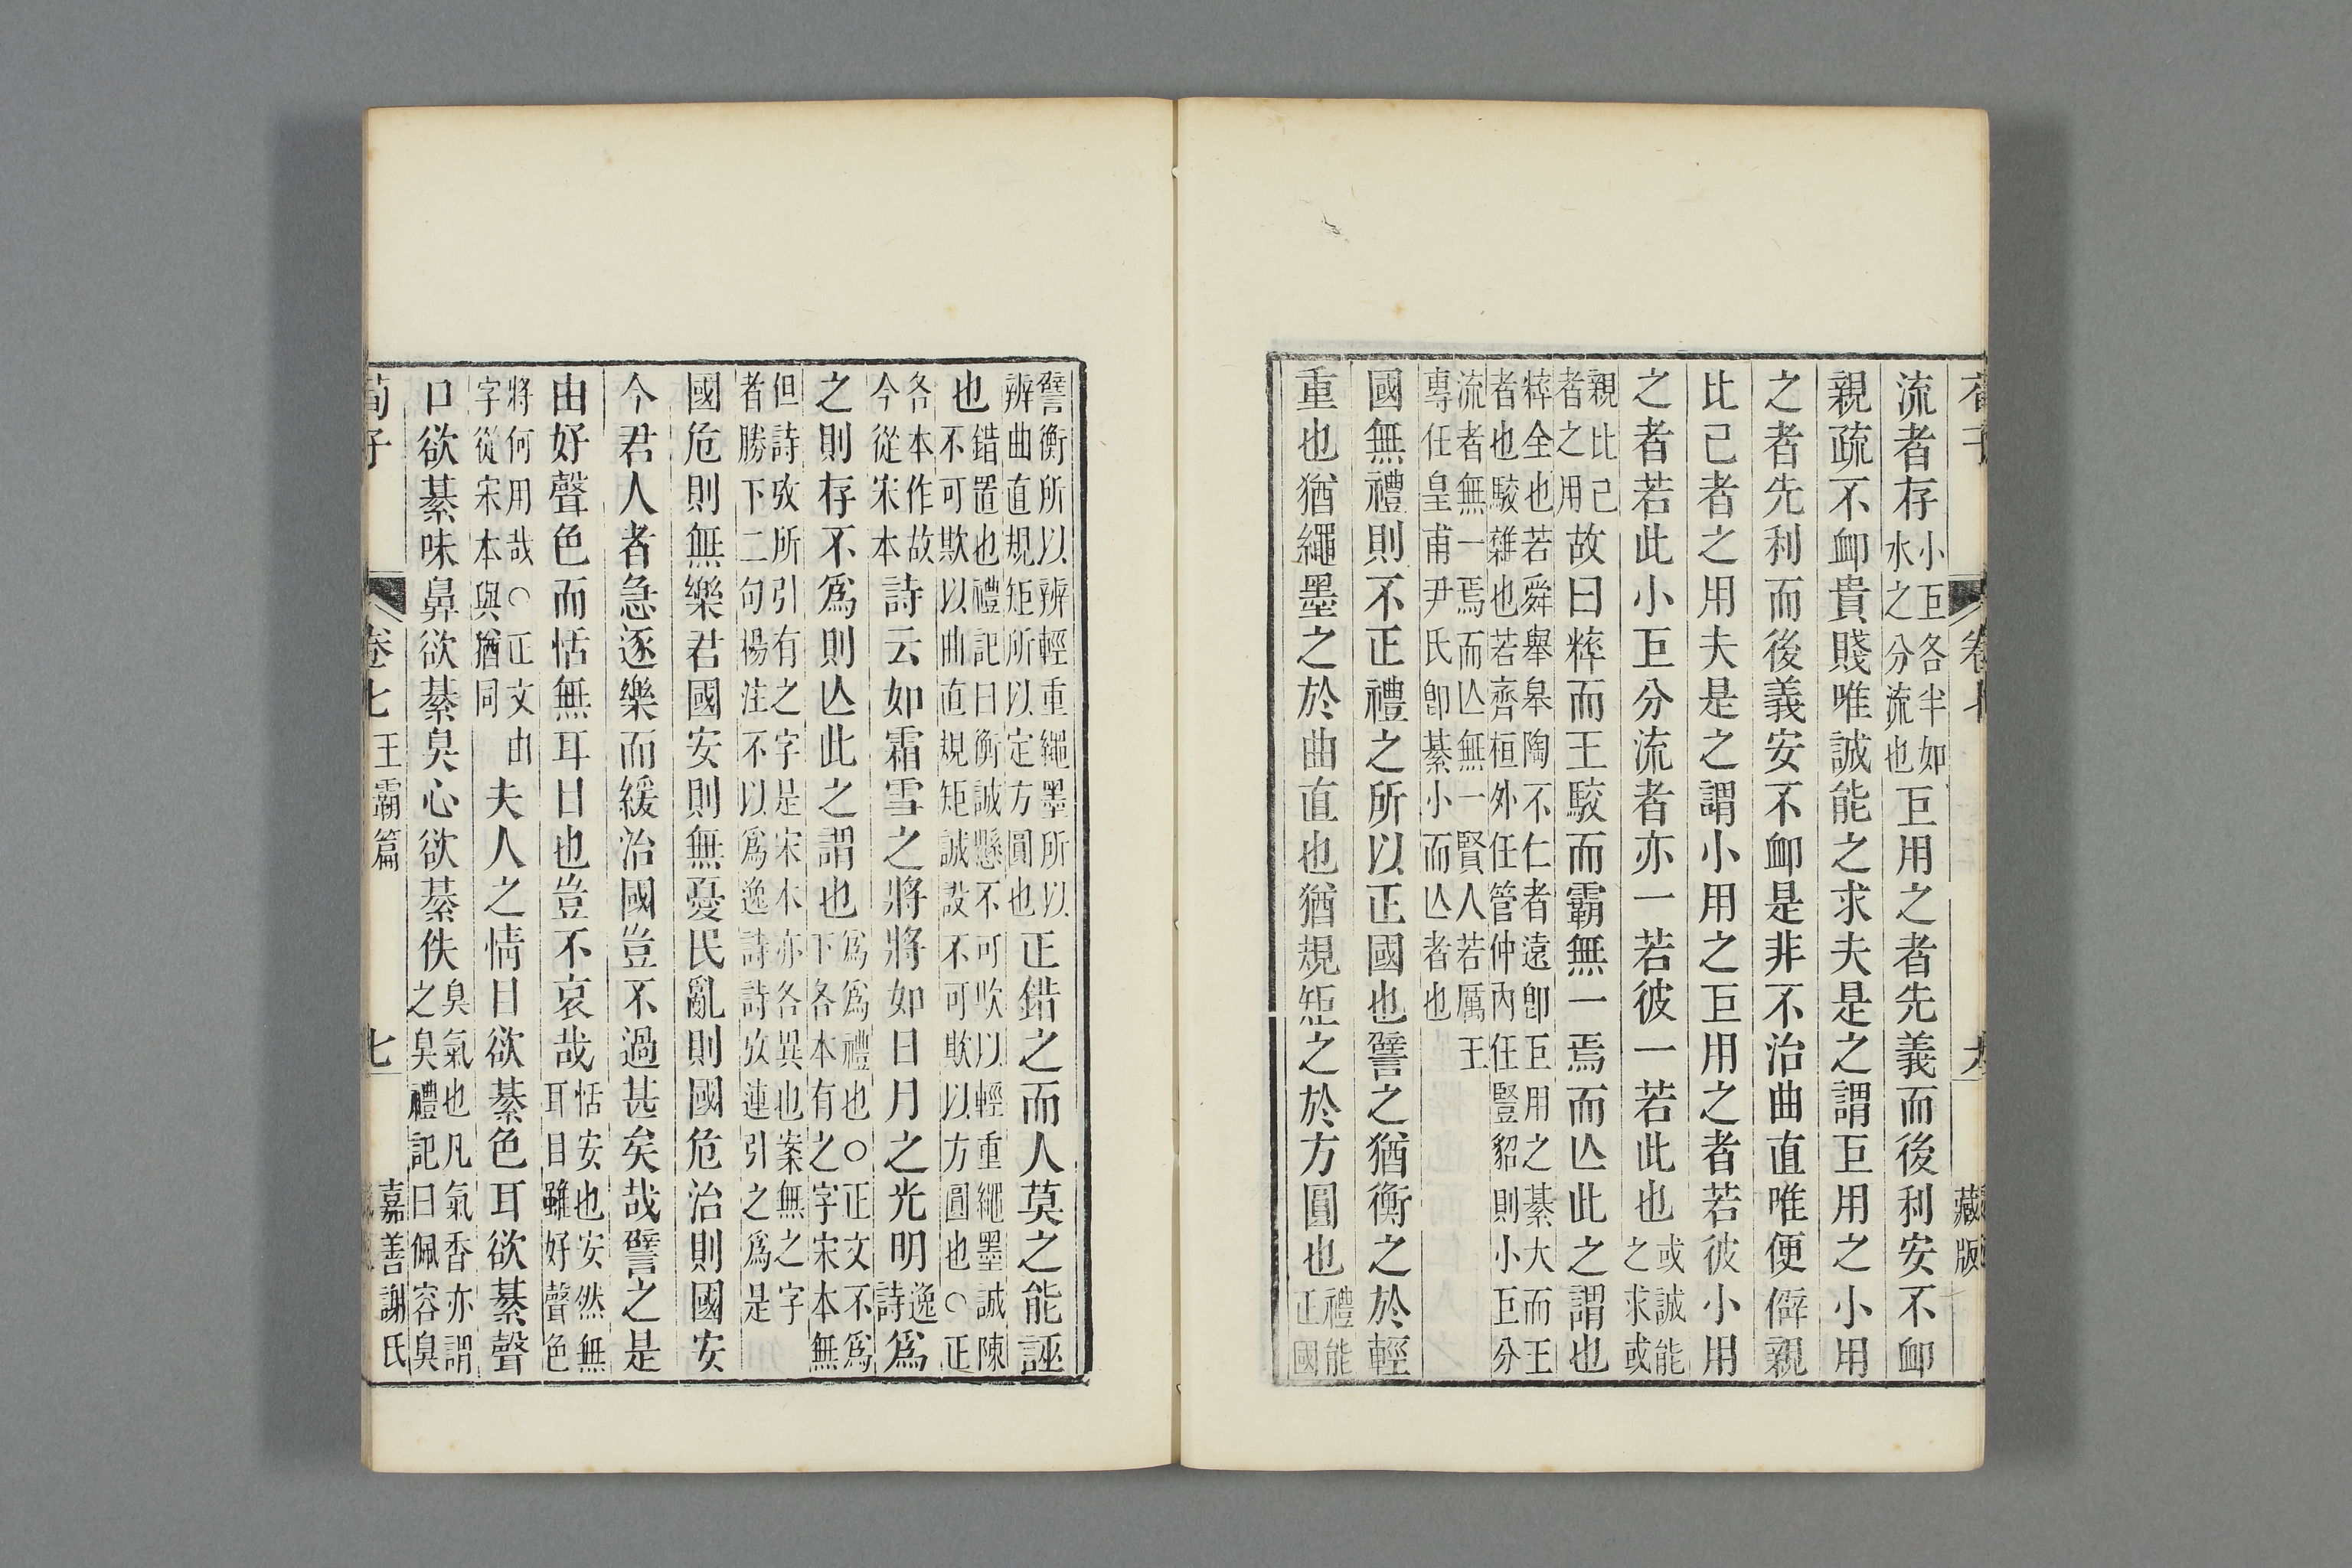 荀子 卷七 六 藏版
流者存小巨各半如水之分流也巨用之者先義而後利安不卹
親疏不卹貴賤唯誠能之求夫是之謂巨用之小用
之者先利而後義安不卹是非不治曲直唯便僻親
比己者之用夫是之謂小用之巨用之者若彼小用
之者若此小巨分流者亦一若彼一若此也或誠能之求或
親比己者之用故曰粹而王駮而霸無一焉而亾此之謂也
粹全也若舜舉皋陶不仁者遠卽巨用之綦大而王
者也駮雜也若齊桓外任管仲內任豎貂則小巨分
流者無一焉而亾無一賢人若厲王
專任皇甫尹氏卽綦小而亾者也
國無禮則不正禮之所以正國也譬之猶衡之於輕
重也猶繩墨之於曲直也猶規矩之於方圓也禮能正國
譬衡所以辨輕重繩墨所以辨曲直規矩所以定方圓也正錯之而人莫之能誣
也錯置也禮記曰衡誠懸不可欺以輕重繩墨誠陳不可欺以曲直規矩誠設不可欺以方圓也○正
各本作故今從宋本詩云如霜雪之將將如日月之光明逸詩爲
之則存不爲則亾此之謂也爲爲禮也○正文不爲下各本有之字宋本無
但詩攷所引有之字是宋本亦各異也案無之字
者勝下二句楊注不以爲逸詩詩攷連引之爲是
國危則無樂君國安則無憂民亂則國危治則國安
今君人者急逐樂而緩治國豈不過甚矣哉譬之是
由好聲色而恬無耳目也豈不哀哉恬安也安然無耳目雖好聲色
將何用哉○正文由字從宋本與猶同夫人之情目欲綦色耳欲綦聲
口欲綦味鼻欲綦臭心欲綦佚臭氣也凡氣香亦謂之臭禮記曰佩容臭
荀子 卷七 王霸篇 七 嘉善謝氏